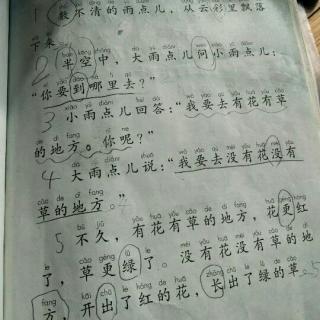 1 数不清的雨点儿，从云彩里飘落
下来。
2 半空中，大雨点儿问小雨点儿：
“你要到哪里去？”
3 小雨点儿回答：“我要去有花有草
的地方。你呢？”
4 大雨点儿说：“我要去没有花没有
草的地方。”
5 不久，有花有草的地方，花更红
了，草更绿了。没有花没有草的地
方，开出了红的花，长出了绿的草。